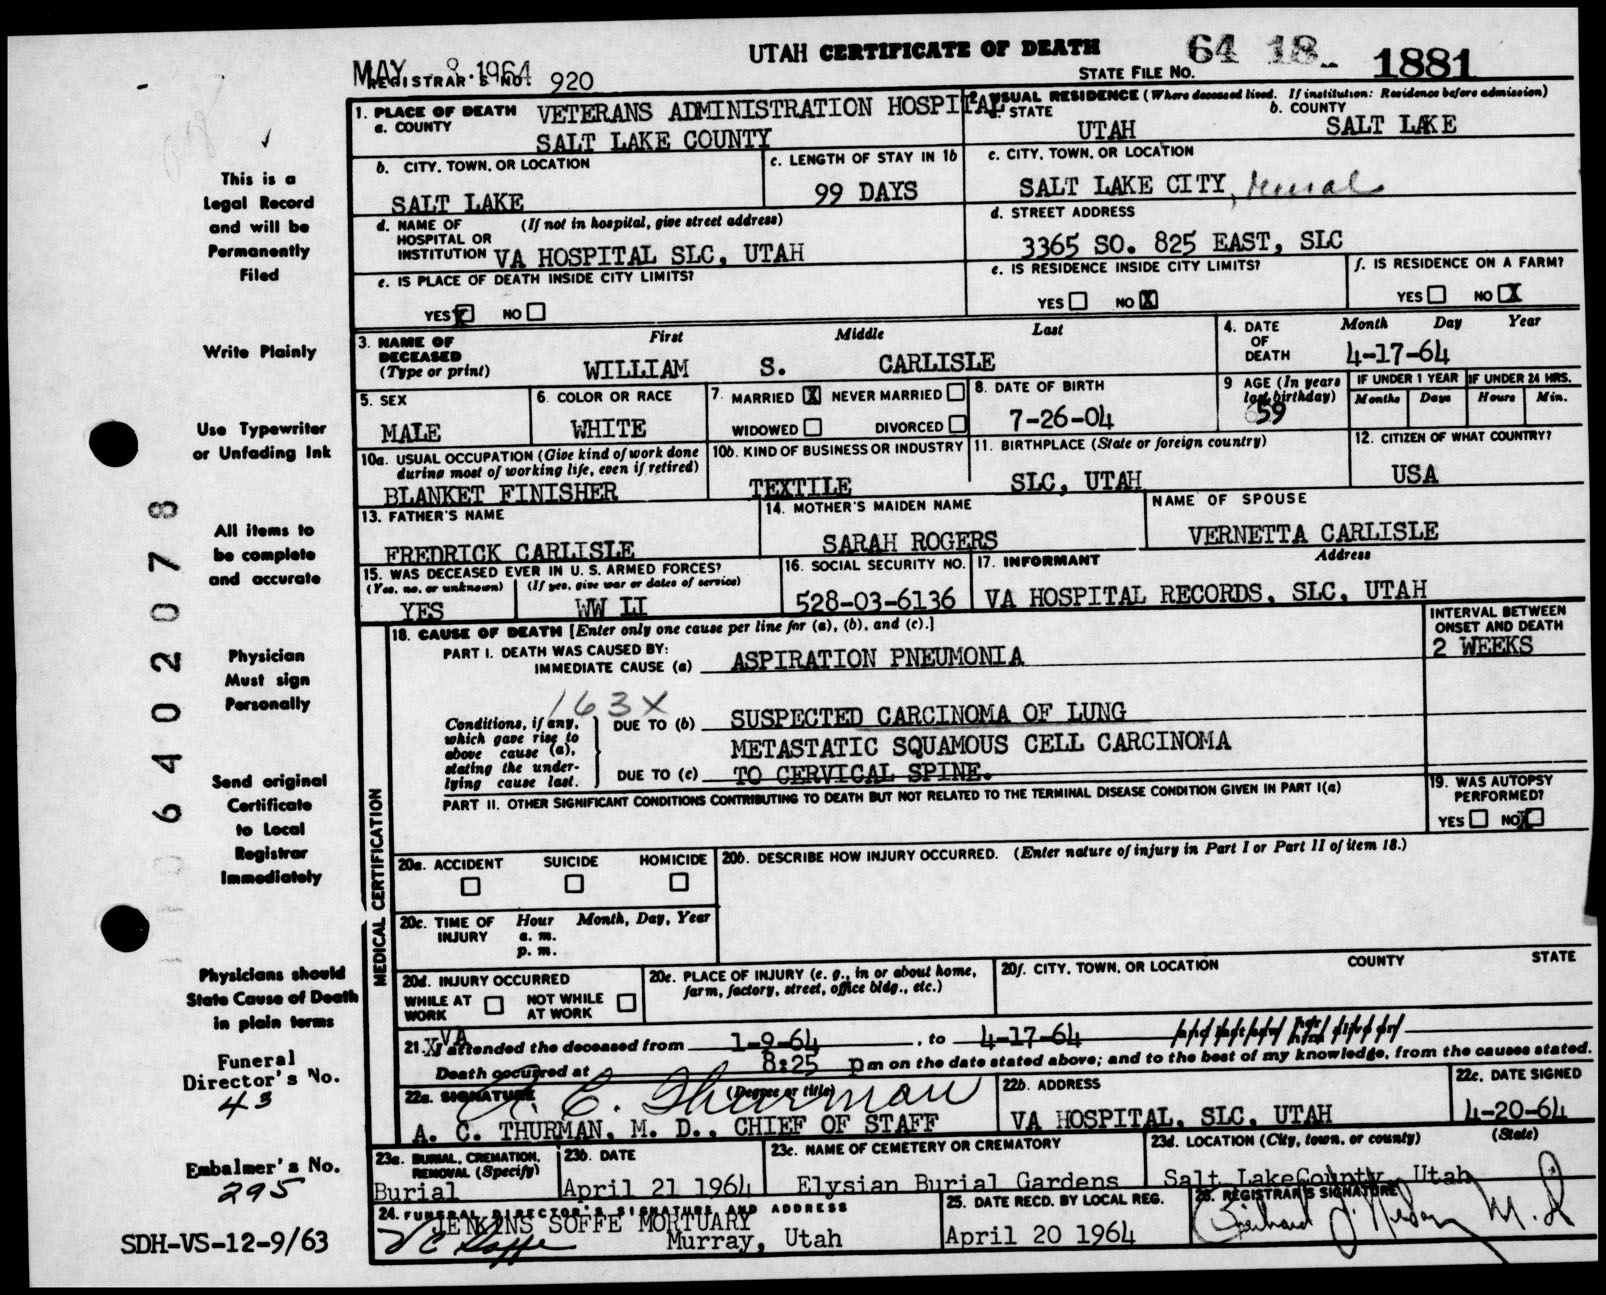 UTAH CERTIFICATE OF DEATH
MAY 8 1964
REGISTRAR'S NO. 920
STATE FILE NO. 64 18 1881
1. PLACE OF DEATH VETERANS ADMINISTRATION HOSPITAL
a. COUNTY SALT LAKE COUNTY
2. USUAL RESIDENCE (Where deceased lived. If institution: Residence before admission)
a. STATE UTAH b. COUNTY SALT LAKE
b. CITY, TOWN, OR LOCATION SALT LAKE
c. LENGTH OF STAY IN 1b 99 DAYS
c. CITY, TOWN, OR LOCATION SALT LAKE CITY, rural
d. NAME OF HOSPITAL OR INSTITUTION (If not in hospital, give street address) VA HOSPITAL SLC, UTAH
d. STREET ADDRESS 3365 SO. 825 EAST, SLC
e. IS PLACE OF DEATH INSIDE CITY LIMITS?
YES X NO
e. IS RESIDENCE INSIDE CITY LIMITS?
YES NO X
f. IS RESIDENCE ON A FARM?
YES NO X
3. NAME OF DECEASED (Type or print)
First Middle Last
WILLIAM S. CARLISLE
4. DATE OF DEATH Month Day Year
4-17-64
5. SEX MALE
6. COLOR OR RACE WHITE
7. MARRIED X NEVER MARRIED
WIDOWED DIVORCED
8. DATE OF BIRTH 7-26-04
9 AGE (In years last birthday) 59
IF UNDER 1 YEAR Months Days
IF UNDER 24 HRS. Hours Min.
10a. USUAL OCCUPATION (Give kind of work done during most of working life, even if retired)
BLANKET FINISHER
10b. KIND OF BUSINESS OR INDUSTRY TEXTILE
11. BIRTHPLACE (State or foreign country) SLC, UTAH
12. CITIZEN OF WHAT COUNTRY? USA
13. FATHER'S NAME FREDRICK CARLISLE
14. MOTHER'S MAIDEN NAME SARAH ROGERS
NAME OF SPOUSE VERNETTA CARLISLE
15. WAS DECEASED EVER IN U. S. ARMED FORCES?
(Yes, no, or unknown) (If yes, give war or dates of service)
YES WW II
16. SOCIAL SECURITY NO. 528-03-6136
17. INFORMANT Address
VA HOSPITAL RECORDS, SLC, UTAH
MEDICAL CERTIFICATION
18. CAUSE OF DEATH [Enter only one cause per line for (a), (b), and (c).]
INTERVAL BETWEEN ONSET AND DEATH
PART I. DEATH WAS CAUSED BY:
IMMEDIATE CAUSE (a) ASPIRATION PNEUMONIA 2 WEEKS
163X
Conditions, if any, which gave rise to above cause (a), stating the underlying cause last.
DUE TO (b) SUSPECTED CARCINOMA OF LUNG
METASTATIC SQUAMOUS CELL CARCINOMA
DUE TO (c) TO CERVICAL SPINE.
PART II. OTHER SIGNIFICANT CONDITIONS CONTRIBUTING TO DEATH BUT NOT RELATED TO THE TERMINAL DISEASE CONDITION GIVEN IN PART I(a)
19. WAS AUTOPSY PERFORMED?
YES NO X
20a. ACCIDENT SUICIDE HOMICIDE
20b. DESCRIBE HOW INJURY OCCURRED. (Enter nature of injury in Part I or Part II of item 18.)
20c. TIME OF INJURY Hour Month, Day, Year
a. m.
p. m.
20d. INJURY OCCURRED
WHILE AT WORK NOT WHILE AT WORK
20e. PLACE OF INJURY (e. g., in or about home, farm, factory, street, office bldg., etc.)
20f. CITY, TOWN, OR LOCATION COUNTY STATE
21. VA attended the deceased from 1-9-64, to 4-17-64
Death occurred at 8:25 pm on the date stated above; and to the best of my knowledge, from the causes stated.
22a. SIGNATURE (Degree or title)
A. C. Thurman
A. C. THURMAN, M. D., CHIEF OF STAFF
22b. ADDRESS VA HOSPITAL, SLC, UTAH
22c. DATE SIGNED 4-20-64
23a. BURIAL, CREMATION, REMOVAL (Specify) Burial
23b. DATE April 21 1964
23c. NAME OF CEMETERY OR CREMATORY Elysian Burial Gardens
23d. LOCATION (City, town, or county) (State)
Salt LakeCounty, Utah
24. FUNERAL DIRECTOR'S SIGNATURE AND ADDRESS
JENKINS SOFFE MORTUARY
Murray, Utah
25. DATE RECD. BY LOCAL REG. April 20 1964
26. REGISTRAR'S SIGNATURE
This is a
Legal Record
and will be
Permanently
Filed
Write Plainly
Use Typewriter
or Unfading Ink
All items to
be complete
and accurate
Physician
Must sign
Personally
Send original
Certificate
to Local
Registrar
Immediately
Physicians should
State Cause of Death
in plain terms
Funeral
Director's No.
43
Embalmer's No.
295
SDH-VS-12-9/63
06402078